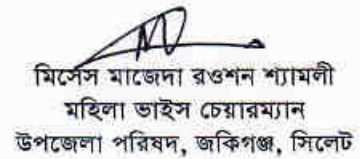 মিসেস মাজেদা রওশন শ্যামলী
মহিলা ভাইস চেয়ারম্যান
উপজেলা পরিষদ, জকিগঞ্জ, সিলেট